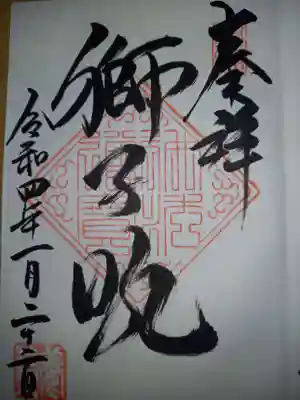 奉拝
獅子吼
令和四年一月二十二日